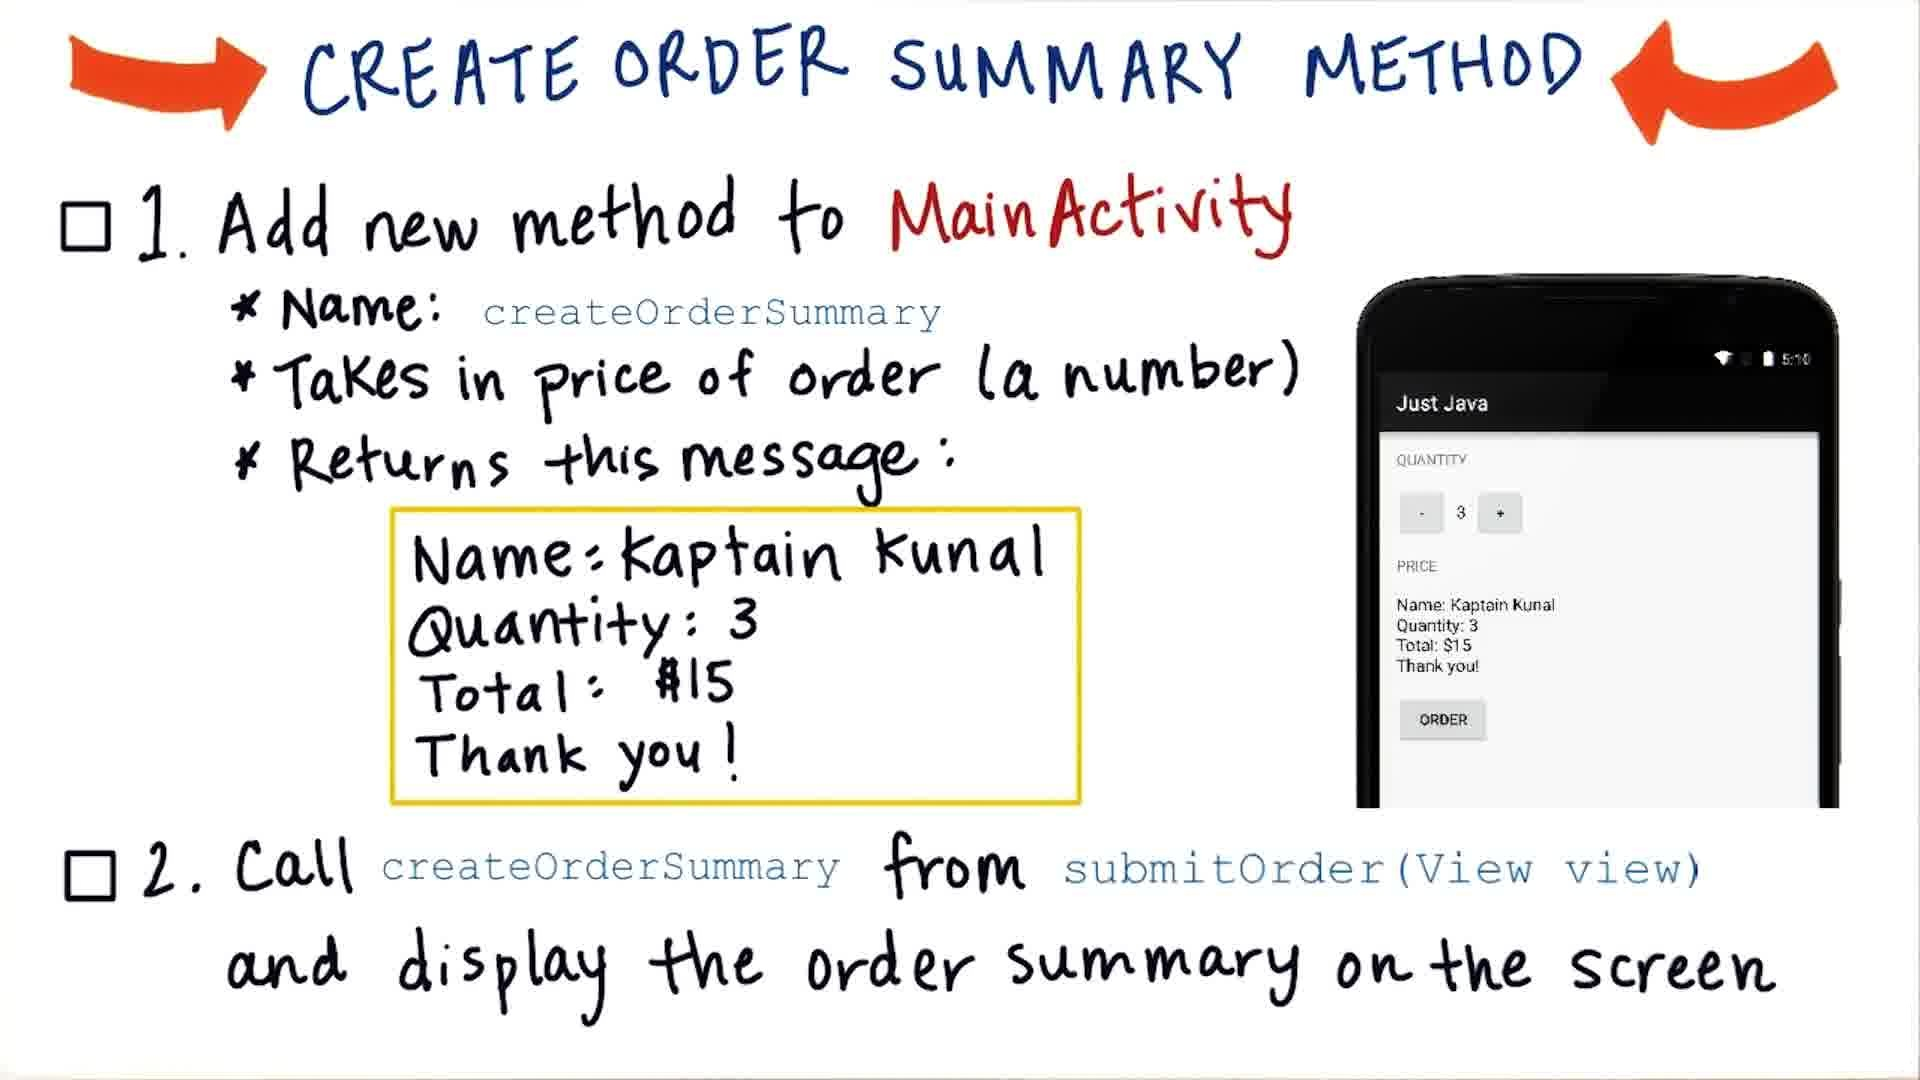 CREATE ORDER SUMMARY METHOD
1. Add new method to MainActivity
* Name: createOrderSummary
* Takes in price of order (a number)
* Returns this message:
Name: Kaptain Kunal
Quantity: 3
Total: $15
Thank you!
5:10
Just Java
QUANTITY
- 3 +
PRICE
Name: Kaptain Kunal
Quantity: 3
Total: $15
Thank you!
ORDER
2. Call createOrderSummary from submitOrder(View view)
and display the order summary on the screen